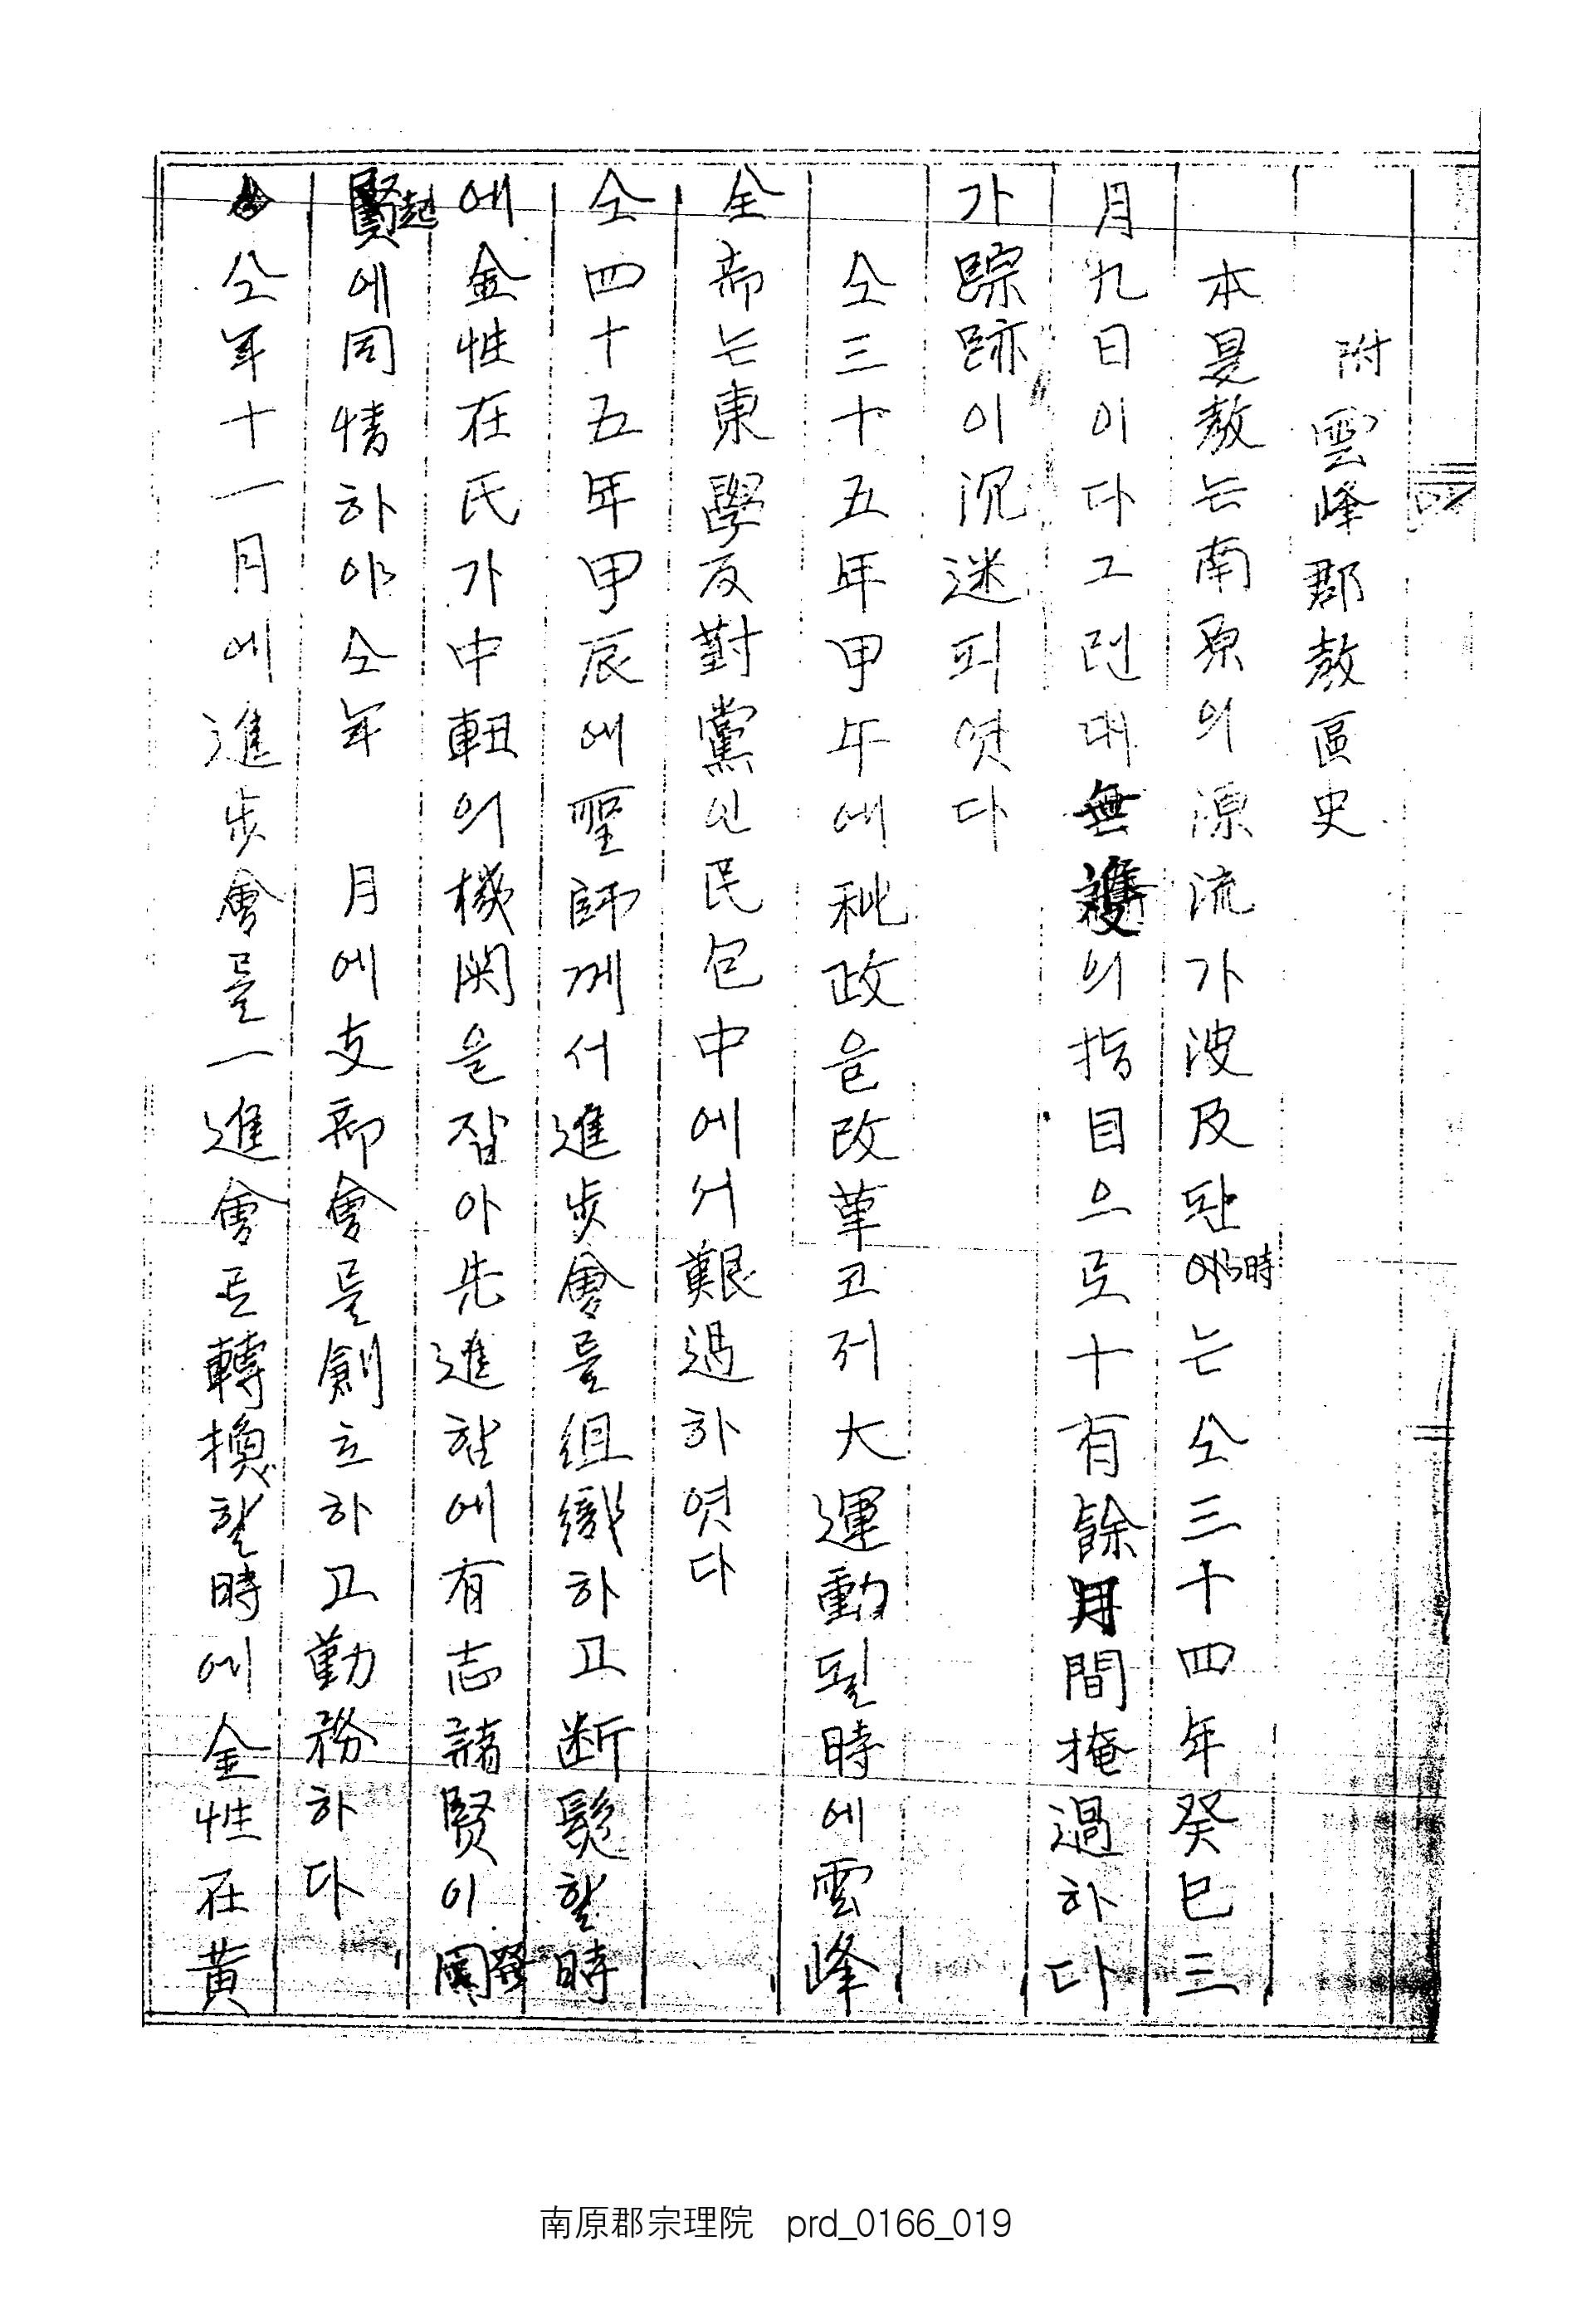 附雲峰郡敎區史
本是敎는南原의源流가波及됨이라時는仝三十四年癸巳三
月九日이다그런대無護의指目으로十有餘月間掩過하다
가踪跡이沉迷되엿다
仝三十五年甲午에秕政을改革코저大運動될時에雲峰
全部는東學反對黨인民包中에서艱過하엿다
仝四十五年甲辰에聖師께서進步會를組織하고断髮할時
에金性在氏가中軸의機関을잡아先進함에有志諸賢이
起에同情하야仝年 月에支部會를創立하고勤務하다
仝年十一月에進步會를一進會로轉換할時에金性在黃
南原郡宗理院 prd_0166_019